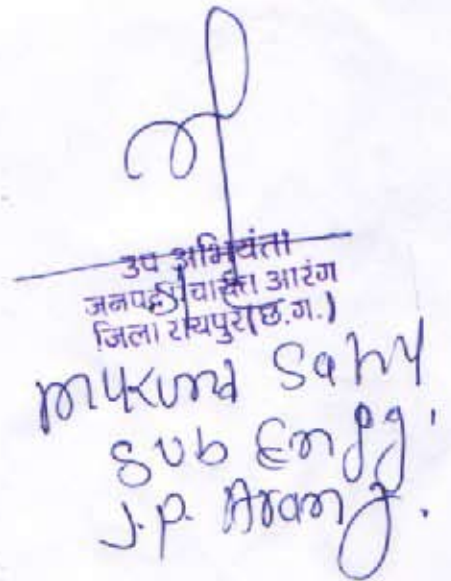 उप अभियंता
जनपद पंचायत आरंग
जिला रायपुर(छ.ग.)
Mukund Sahu
Sub Engg.
J.P. Arang.